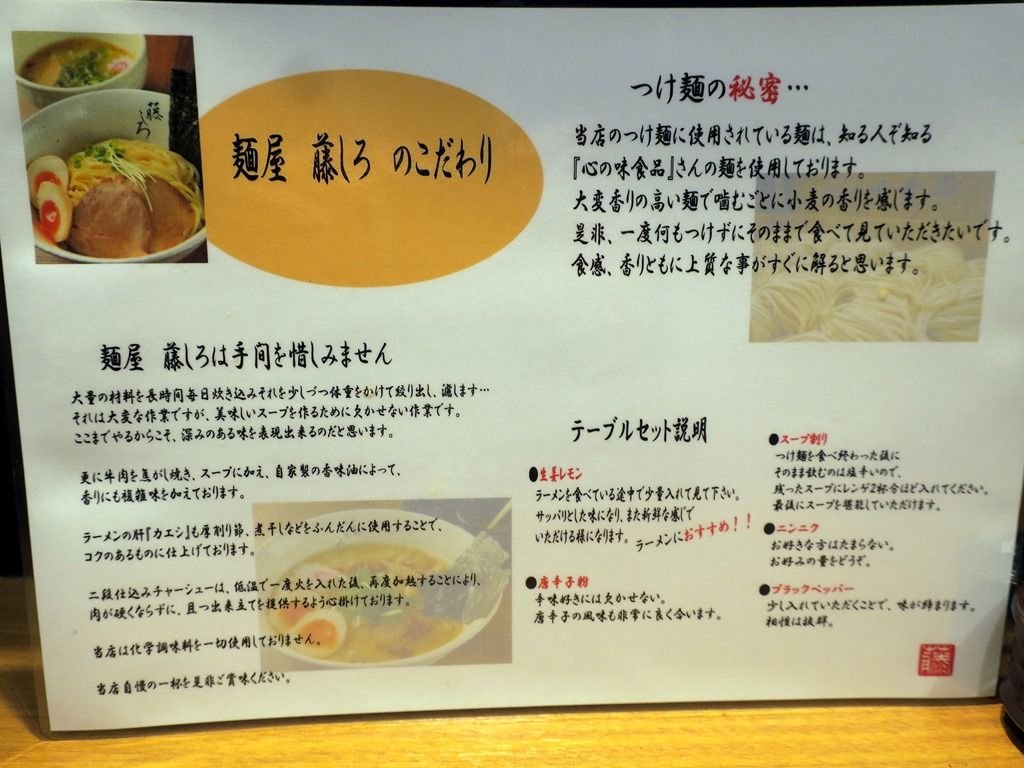 藤しろ
麺屋 藤しろ のこだわり
つけ麺の秘密…
当店のつけ麺に使用されている麺は、知る人ぞ知る
『心の味食品』さんの麺を使用しております。
大変香りの高い麺で噛むごとに小麦の香りを感じます。
是非、一度何もつけずにそのままで食べて見ていただきたいです。
食感、香りともに上質な事がすぐに解ると思います。
麺屋 藤しろは手間を惜しみません
大量の材料を長時間毎日炊き込みそれを少しづつ体重をかけて絞り出し、濾します…
それは大変な作業ですが、美味しいスープを作るために欠かせない作業です。
ここまでやるからこそ、深みのある味を表現出来るのだと思います。
更に牛肉を焦がし焼き、スープに加え、自家製の香味油によって、
香りにも複雑味を加えております。
ラーメンの肝『カエシ』も厚削り節、煮干しなどをふんだんに使用することで、
コクのあるものに仕上げております。
二段仕込みチャーシューは、低温で一度火を入れた後、再度加熱することにより、
肉が硬くならずに、且つ出来立てを提供するよう心掛けております。
当店は化学調味料を一切使用しておりません。
当店自慢の一杯を是非ご賞味ください。
テーブルセット説明
●生姜レモン
ラーメンを食べている途中で少量入れて見て下さい。
サッパリとした味になり、また新鮮な感じで
いただける様になります。 ラーメンにおすすめ！！
●唐辛子粉
辛味好きには欠かせない。
唐辛子の風味も非常に良く合います。
●スープ割り
つけ麺を食べ終わった後に
そのまま飲むのは塩辛いので、
残ったスープにレンゲ2杯分ほど入れてください。
最後にスープを堪能していただけます。
●ニンニク
お好きな方はたまらない。
お好みの量をどうぞ。
●ブラックペッパー
少し入れていただくことで、味が締まります。
相性は抜群。
藤